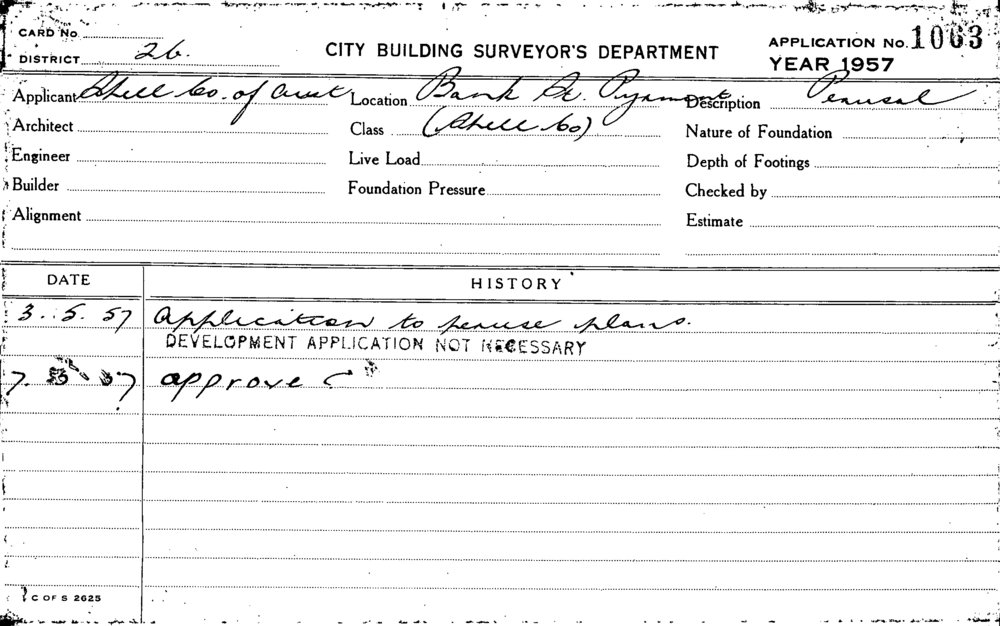 CARD No.
DISTRICT 26.
CITY BUILDING SURVEYOR'S DEPARTMENT
APPLICATION No. 1063
YEAR 1957
Applicant Shell Co. of Aust Location Bank St. Pyrmont Description Perusal
Architect Class (Shell Co) Nature of Foundation
Engineer Live Load Depth of Footings
Builder Foundation Pressure Checked by
Alignment Estimate
DATE HISTORY
3.5.57 Application to peruse plans.
DEVELOPMENT APPLICATION NOT NECESSARY
7. 57 approve
C OF S 2625